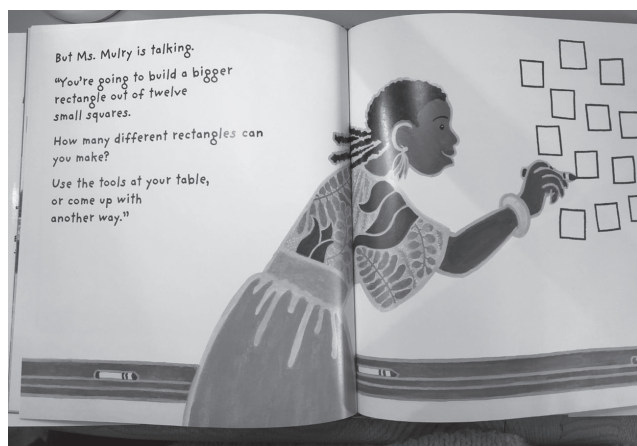 But Ms. Mulry is talking.
"You're going to build a bigger
rectangle out of twelve
small squares.
How many different rectangles can
you make?
Use the tools at your table,
or come up with
another way."